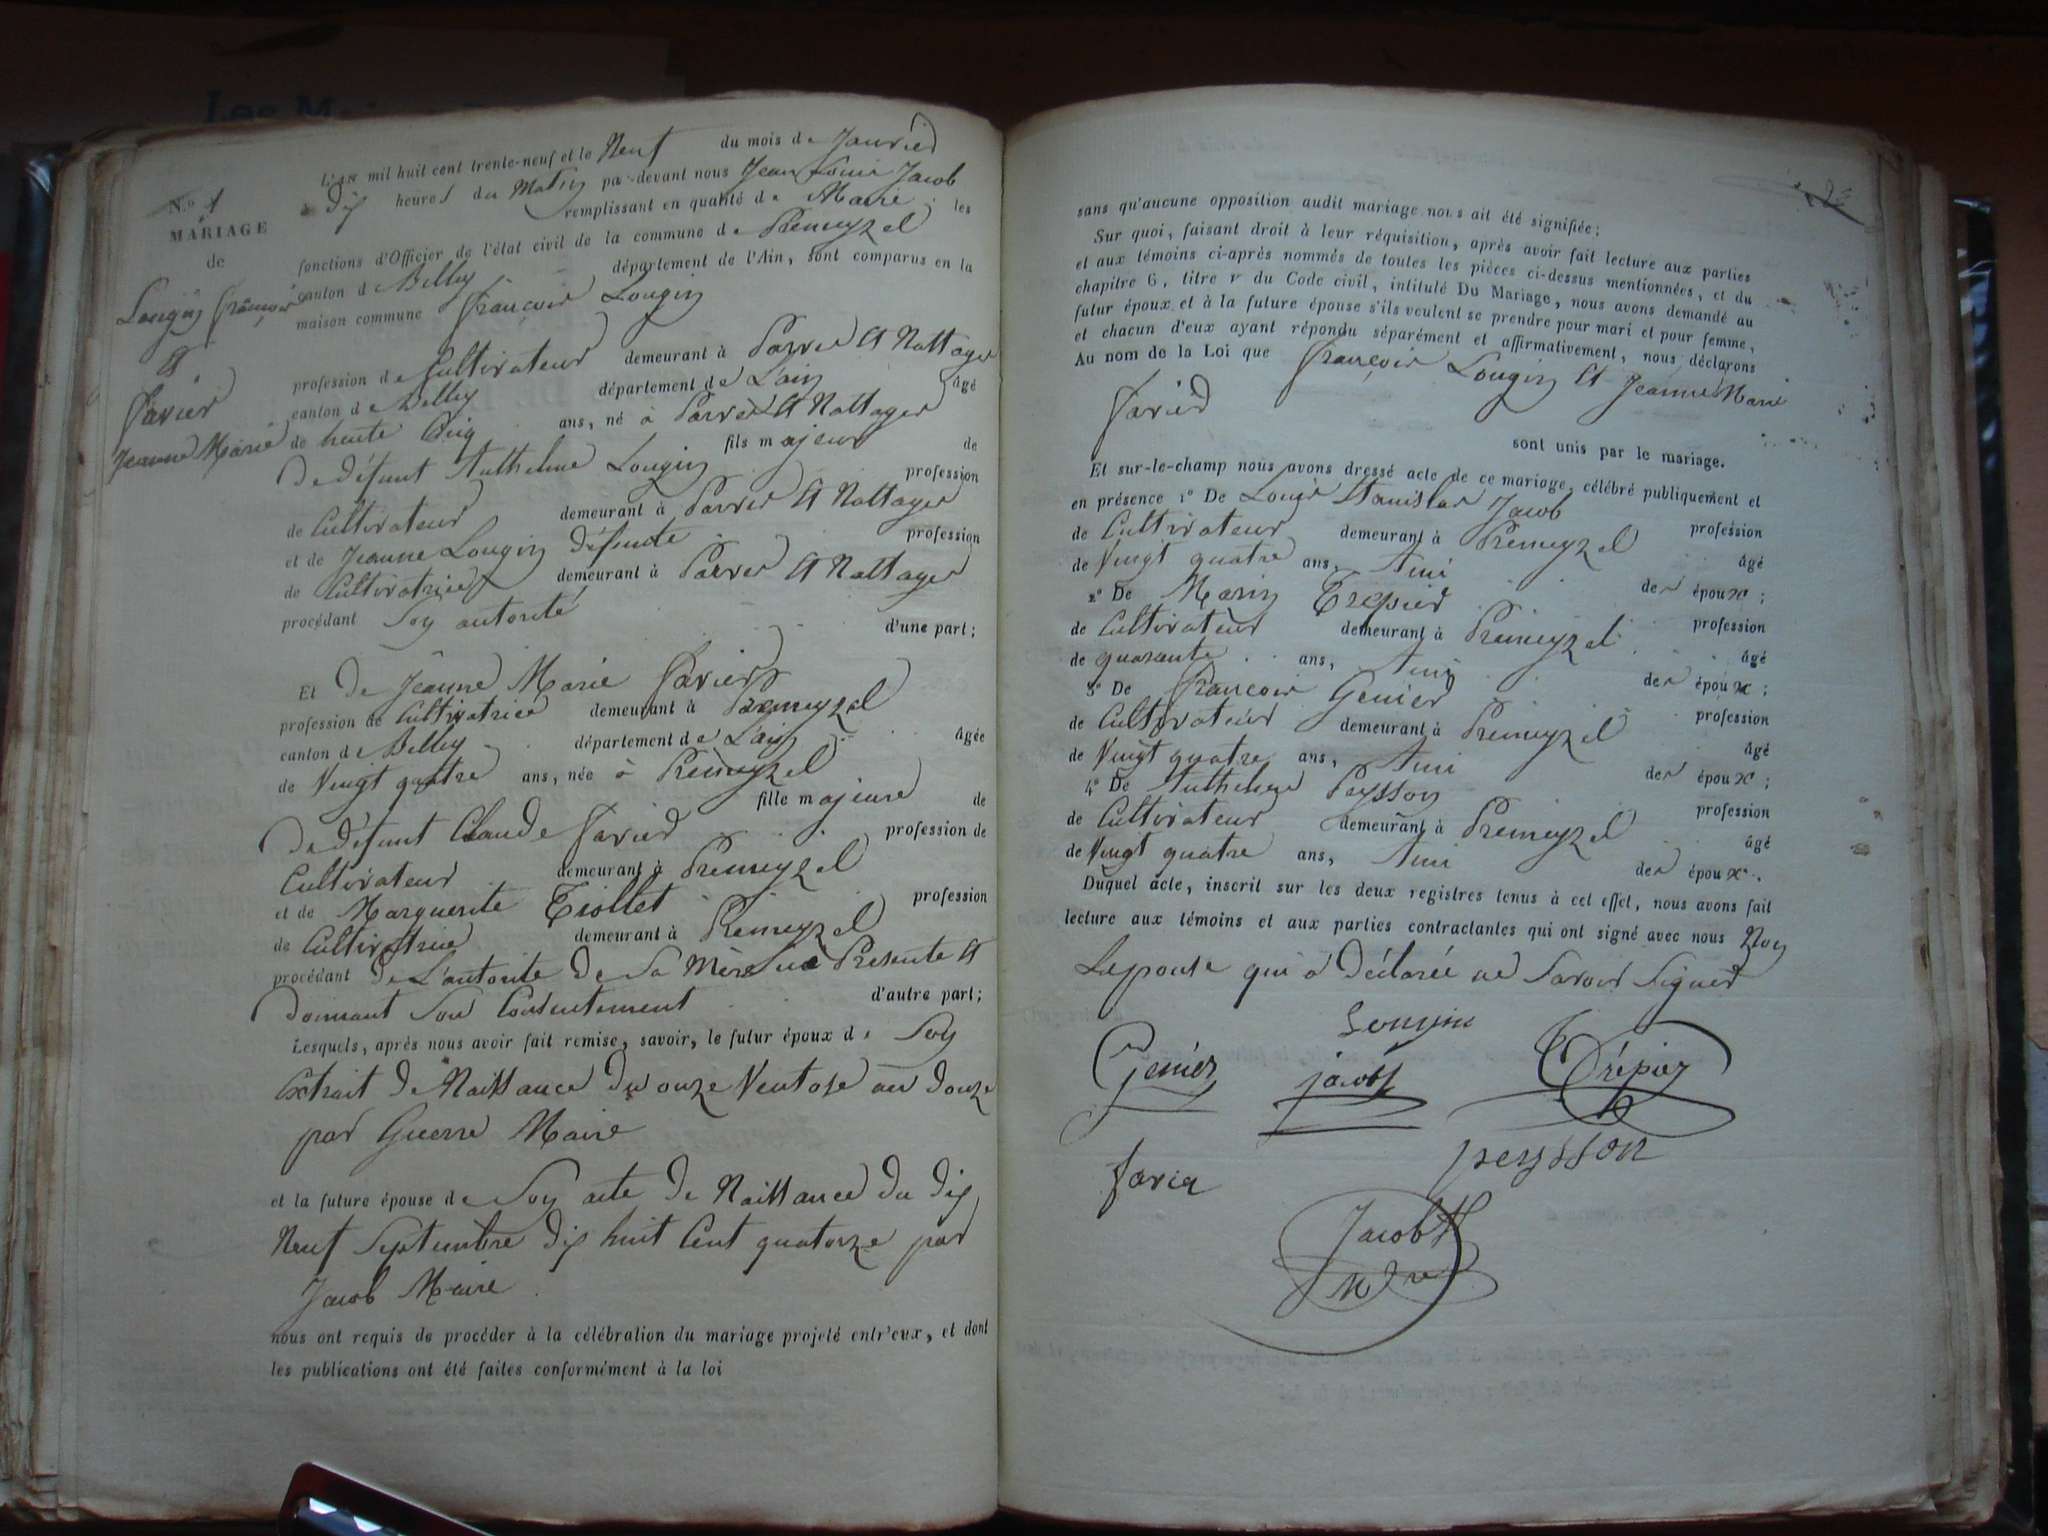 L'an mil huit cent trente-neuf et le Neuf du mois de Janvier
à Dix heures du Matin par-devant nous Jean Louis Jacob
remplissant en qualité de Maire les
fonctions d'Officier de l'état civil de la commune de Premeyzel
canton de Belley département de l'Ain, sont comparus en la
maison commune François Lougin
N.º 1
MARIAGE
de
Lougin François
et
Favier
Jeanne Marie
profession de Cultivateur demeurant à Parves et Nattages
canton de Belley département de L'ain âgé
de trente Cinq ans, né à Parves et Nattages
fils majeur de
De défunt Anthelme Lougin profession
de Cultivateur demeurant à Parves et Nattages
et de Jeanne Lougin défunte profession
de Cultivatrice demeurant à Parves et Nattages
procédant Son autorité
d'une part;
Et De Jeanne Marie Favier
profession de Cultivatrice demeurant à Premeyzel
canton de Belley département de L'ain âgée
de Vingt quatre ans, née à Premeyzel
fille majeure de
De défunt Claude Favier profession de
Cultivateur demeurant à Premeyzel
et de Marguerite Tiollet profession
de Cultivatrice demeurant à Premeyzel
procédant de L'autorité de Sa Mère ici Présente et
donnant Son Consentement d'autre part;
Lesquels, après nous avoir fait remise, savoir, le futur époux de Son
Extrait de Naissance du onze Ventose an douze
par Guerre Maire
et la future épouse de Son acte de Naissance du dix
Neuf Septembre dix huit Cent quatorze par
Jacob Maire
nous ont requis de procéder à la célébration du mariage projeté entr'eux, et dont
les publications ont été faites conformément à la loi
sans qu'aucune opposition audit mariage nous ait été signifiée;
Sur quoi, faisant droit à leur réquisition, après avoir fait lecture aux parties
et aux témoins ci-après nommés de toutes les pièces ci-dessus mentionnées, et du
chapitre 6, titre V du Code civil, intitulé Du Mariage, nous avons demandé au
futur époux et à la future épouse s'ils veulent se prendre pour mari et pour femme,
et chacun d'eux ayant répondu séparément et affirmativement, nous déclarons
Au nom de la Loi que François Lougin et Jeanne Marie
Favier
sont unis par le mariage.
Et sur-le-champ nous avons dressé acte de ce mariage, célébré publiquement et
en présence 1º De Louis Stanislas Jacob
profession
de Cultivateur demeurant à Premeyzel âgé
de Vingt quatre ans, Ami des époux;
2º De Marin Trepier profession
de Cultivateur demeurant à Premeyzel âgé
de quarante ans, Ami des époux;
3º De François Genier profession
de Cultivateur demeurant à Premeyzel âgé
de Vingt quatre ans, Ami des époux;
4º De Anthelme Peysson profession
de Cultivateur demeurant à Premeyzel âgé
de Vingt quatre ans, Ami des époux.
Duquel acte, inscrit sur les deux registres tenus à cet effet, nous avons fait
lecture aux témoins et aux parties contractantes qui ont signé avec nous Non
Lepouse qui a déclarée ne Savoir Signer
Lougin
Genier jacob Trépier
favier peysson
Jacob